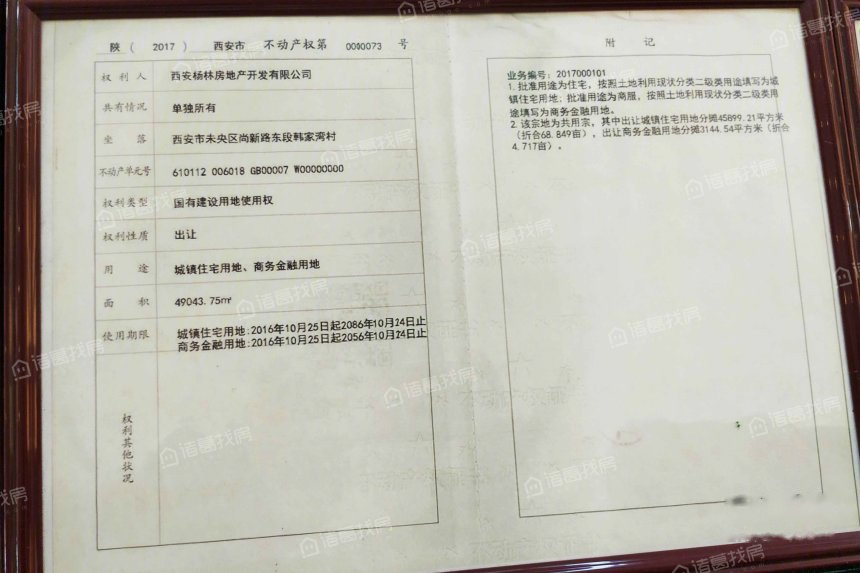 陕（ 2017 ） 西安市 不动产权第 0000073 号
权利人 西安杨林房地产开发有限公司
共有情况 单独所有
坐落 西安市未央区尚新路东段韩家湾村
不动产单元号 610112 006018 GB00007 W00000000
权利类型 国有建设用地使用权
权利性质 出让
用途 城镇住宅用地、商务金融用地
面积 49043.75㎡
使用期限 城镇住宅用地:2016年10月25日起2086年10月24日止
商务金融用地:2016年10月25日起2056年10月24日止
权利其他状况
附记
业务编号: 2017000101
1. 批准用途为住宅，按照土地利用现状分类二级类用途填写为城
镇住宅用地；批准用途为商服，按照土地利用现状分类二级类用
途填写为商务金融用地。
2. 该宗地为共用宗，其中出让城镇住宅用地分摊45899.21平方米
（折合68.849亩），出让商务金融用地分摊3144.54平方米（折合
4.717亩）。
诸葛找房